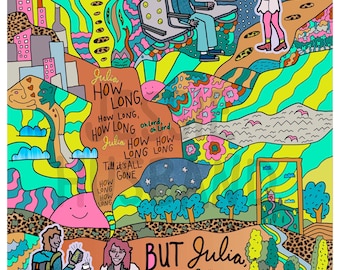 Julia
HOW
LONG,
HOW LONG,
HOW LONG
Oh Lord,
Oh Lord
Julia HOW
LONG HOW LONG
Till it's ALL
GONE
HOW
LONG
HOW HOW
LONG LONG
BUT Julia,